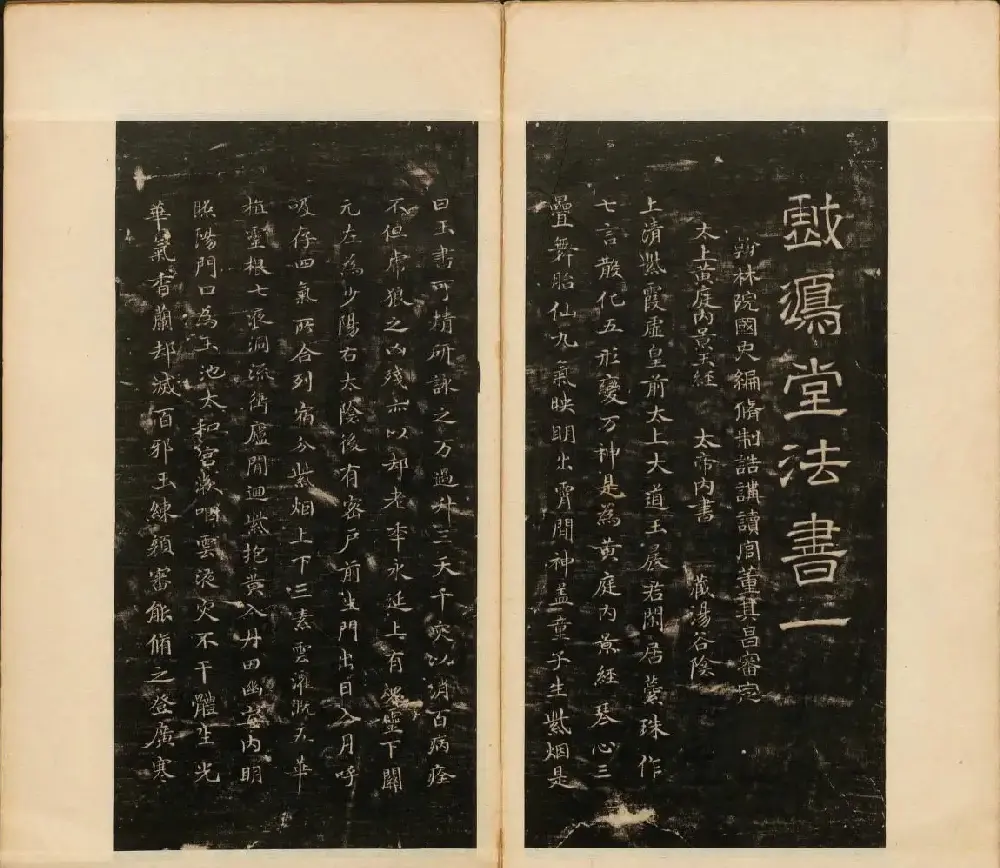 戲鴻堂法書一
翰林院國史編脩制誥講讀官董其昌審定
太上黃庭內景玉經　太帝內書　藏湯谷陰
上清紫霞虛皇前太上大道玉晨君閒居蘂珠作
七言散化五形變万神是為黃庭內景經琴心三
疊舞胎仙九氣映明出霄間神蓋童子生紫烟是
曰玉書可精研詠之万過升三天千灾以消百病痊
不但虎狼之凶殘亦以却老年永延上有魂靈下關
元左為少陽右太陰後有密戶前生門出日入月呼
吸存四氣所合列宿分紫烟上下三素雲灌溉五華
植靈根七液洞流衝廬間迴紫抱黃入丹田幽室內明
照陽門口為玉池太和宮漱咽靈液灾不干體生光
華氣香蘭却滅百邪玉練顏審能脩之登廣寒